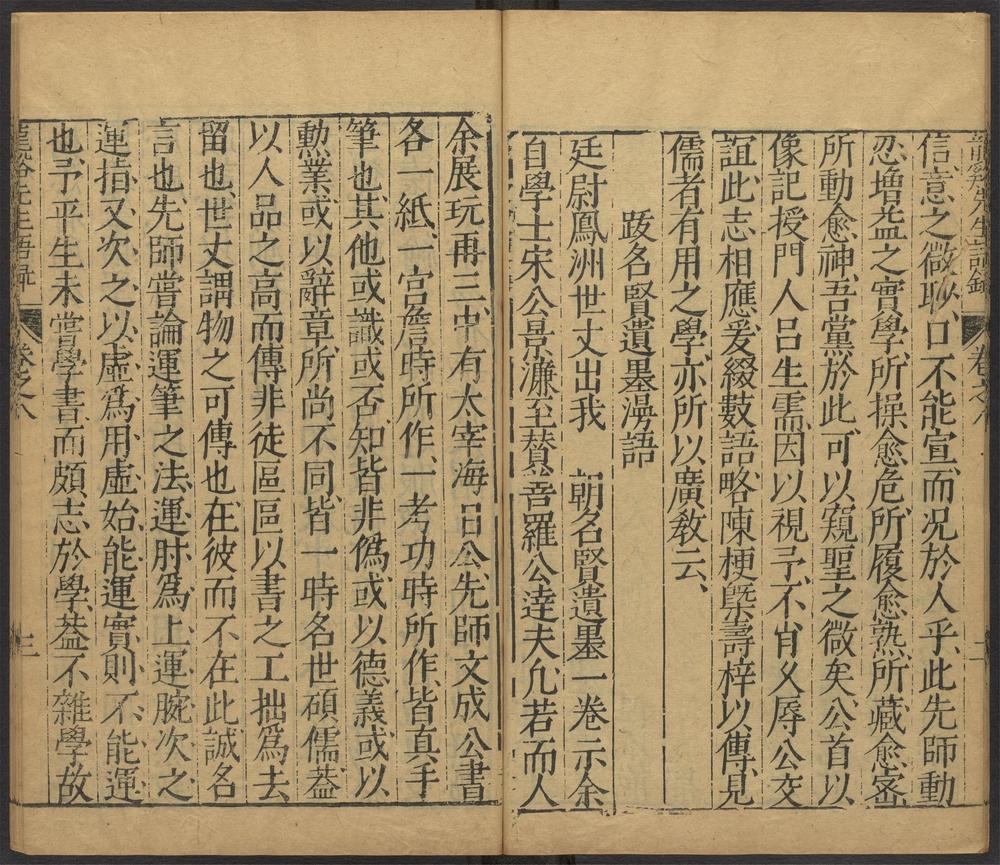 龍谿先生語錄 卷之八 二
信意之微耿口不能宣而况於人乎此先師動
忍增益之實學所操愈危所履愈熟所藏愈密
所動愈神吾黨於此可以窺聖之微矣公首以
像記授門人吕生需因以視予不肖乂辱公交
誼此志相應爰綴數語略陳梗槩壽梓以傳見
儒者有用之學亦所以廣敎云
跋名賢遺墨漫語
廷尉鳳洲世丈出我 朝名賢遺墨一卷示余
自學士宋公景濂至賛善羅公達夫凢若而人
余展玩再三中有太宰海日公先師文成公書
各一紙一宫詹時所作一考功時所作皆真手
筆也其他或識或否知皆非僞或以德義或以
勳業或以辭章所尚不同皆一時名世碩儒葢
以人品之高而傳非徒區區以書之工拙爲去
留也世丈謂物之可傳也在彼而不在此誠名
言也先師嘗論運筆之法運肘爲上運腕次之
運指又次之以虛爲用虛始能運實則不能運
也予平生未嘗學書而頗志於學葢不雜學故
龍谿先生語録 卷之八 三